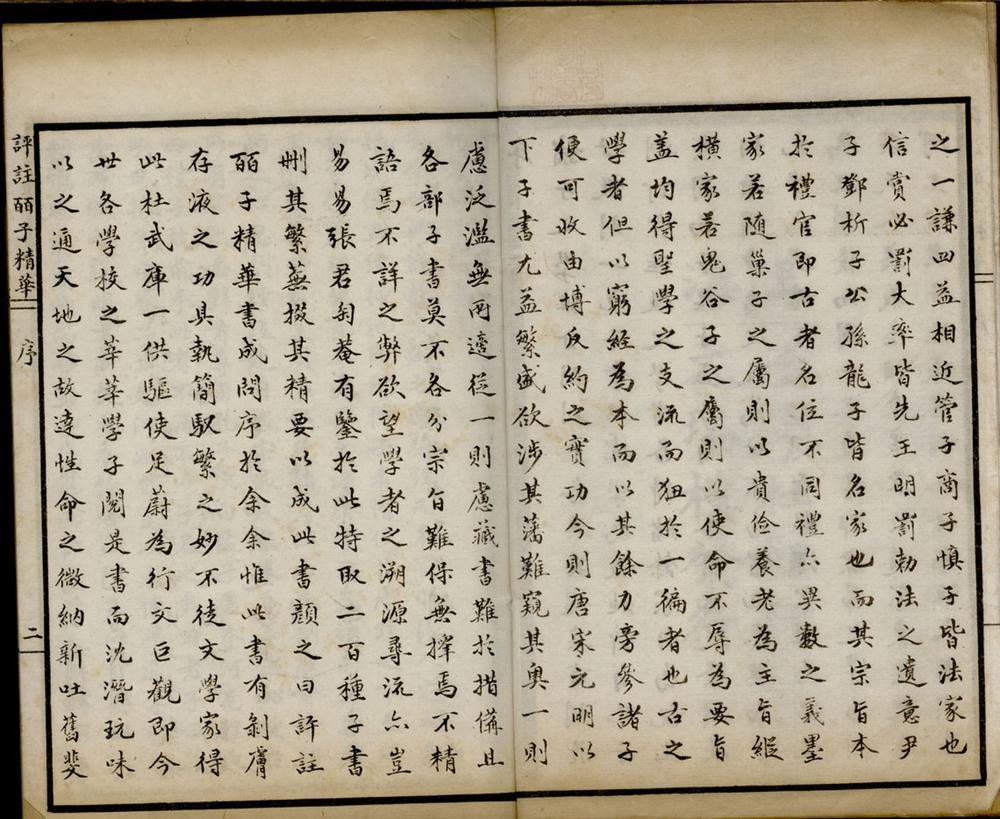 之一謙四益相近管子商子慎子皆法家也
信賞必罰大率皆先王明罰勅法之遺意尹
子鄧析子公孫龍子皆名家也而其宗旨本
於禮官即古者名位不同禮亦異數之義墨
家若随巢子之屬則以貴儉養老為主旨縱
橫家若鬼谷子之屬則以使命不辱為要旨
蓋均得聖學之支流而狃於一徧者也古之
學者但以窮經為本而以其餘力旁參諸子
便可收由博反約之實功今則唐宋元明以
下子書尤益繁盛欲涉其藩難窺其奧一則
慮泛濫無所適從一則慮藏書難於措備且
各部子書莫不各分宗旨難保無擇焉不精
語焉不詳之弊欲望學者之溯源尋流亦豈
易易張君匋菴有鑒於此特取二百種子書
刪其繁蕪掇其精要以成此書顏之曰評註
皕子精華書成問序於余余惟此書有剝膚
存液之功具執簡馭繁之妙不徒文學家得
此杜武庫一供驅使足蔚為行文巨觀即今
世各學校之莘莘學子閱是書而沈潛玩味
以之通天地之故達性命之微納新吐舊斐
評註皕子精華
序
二